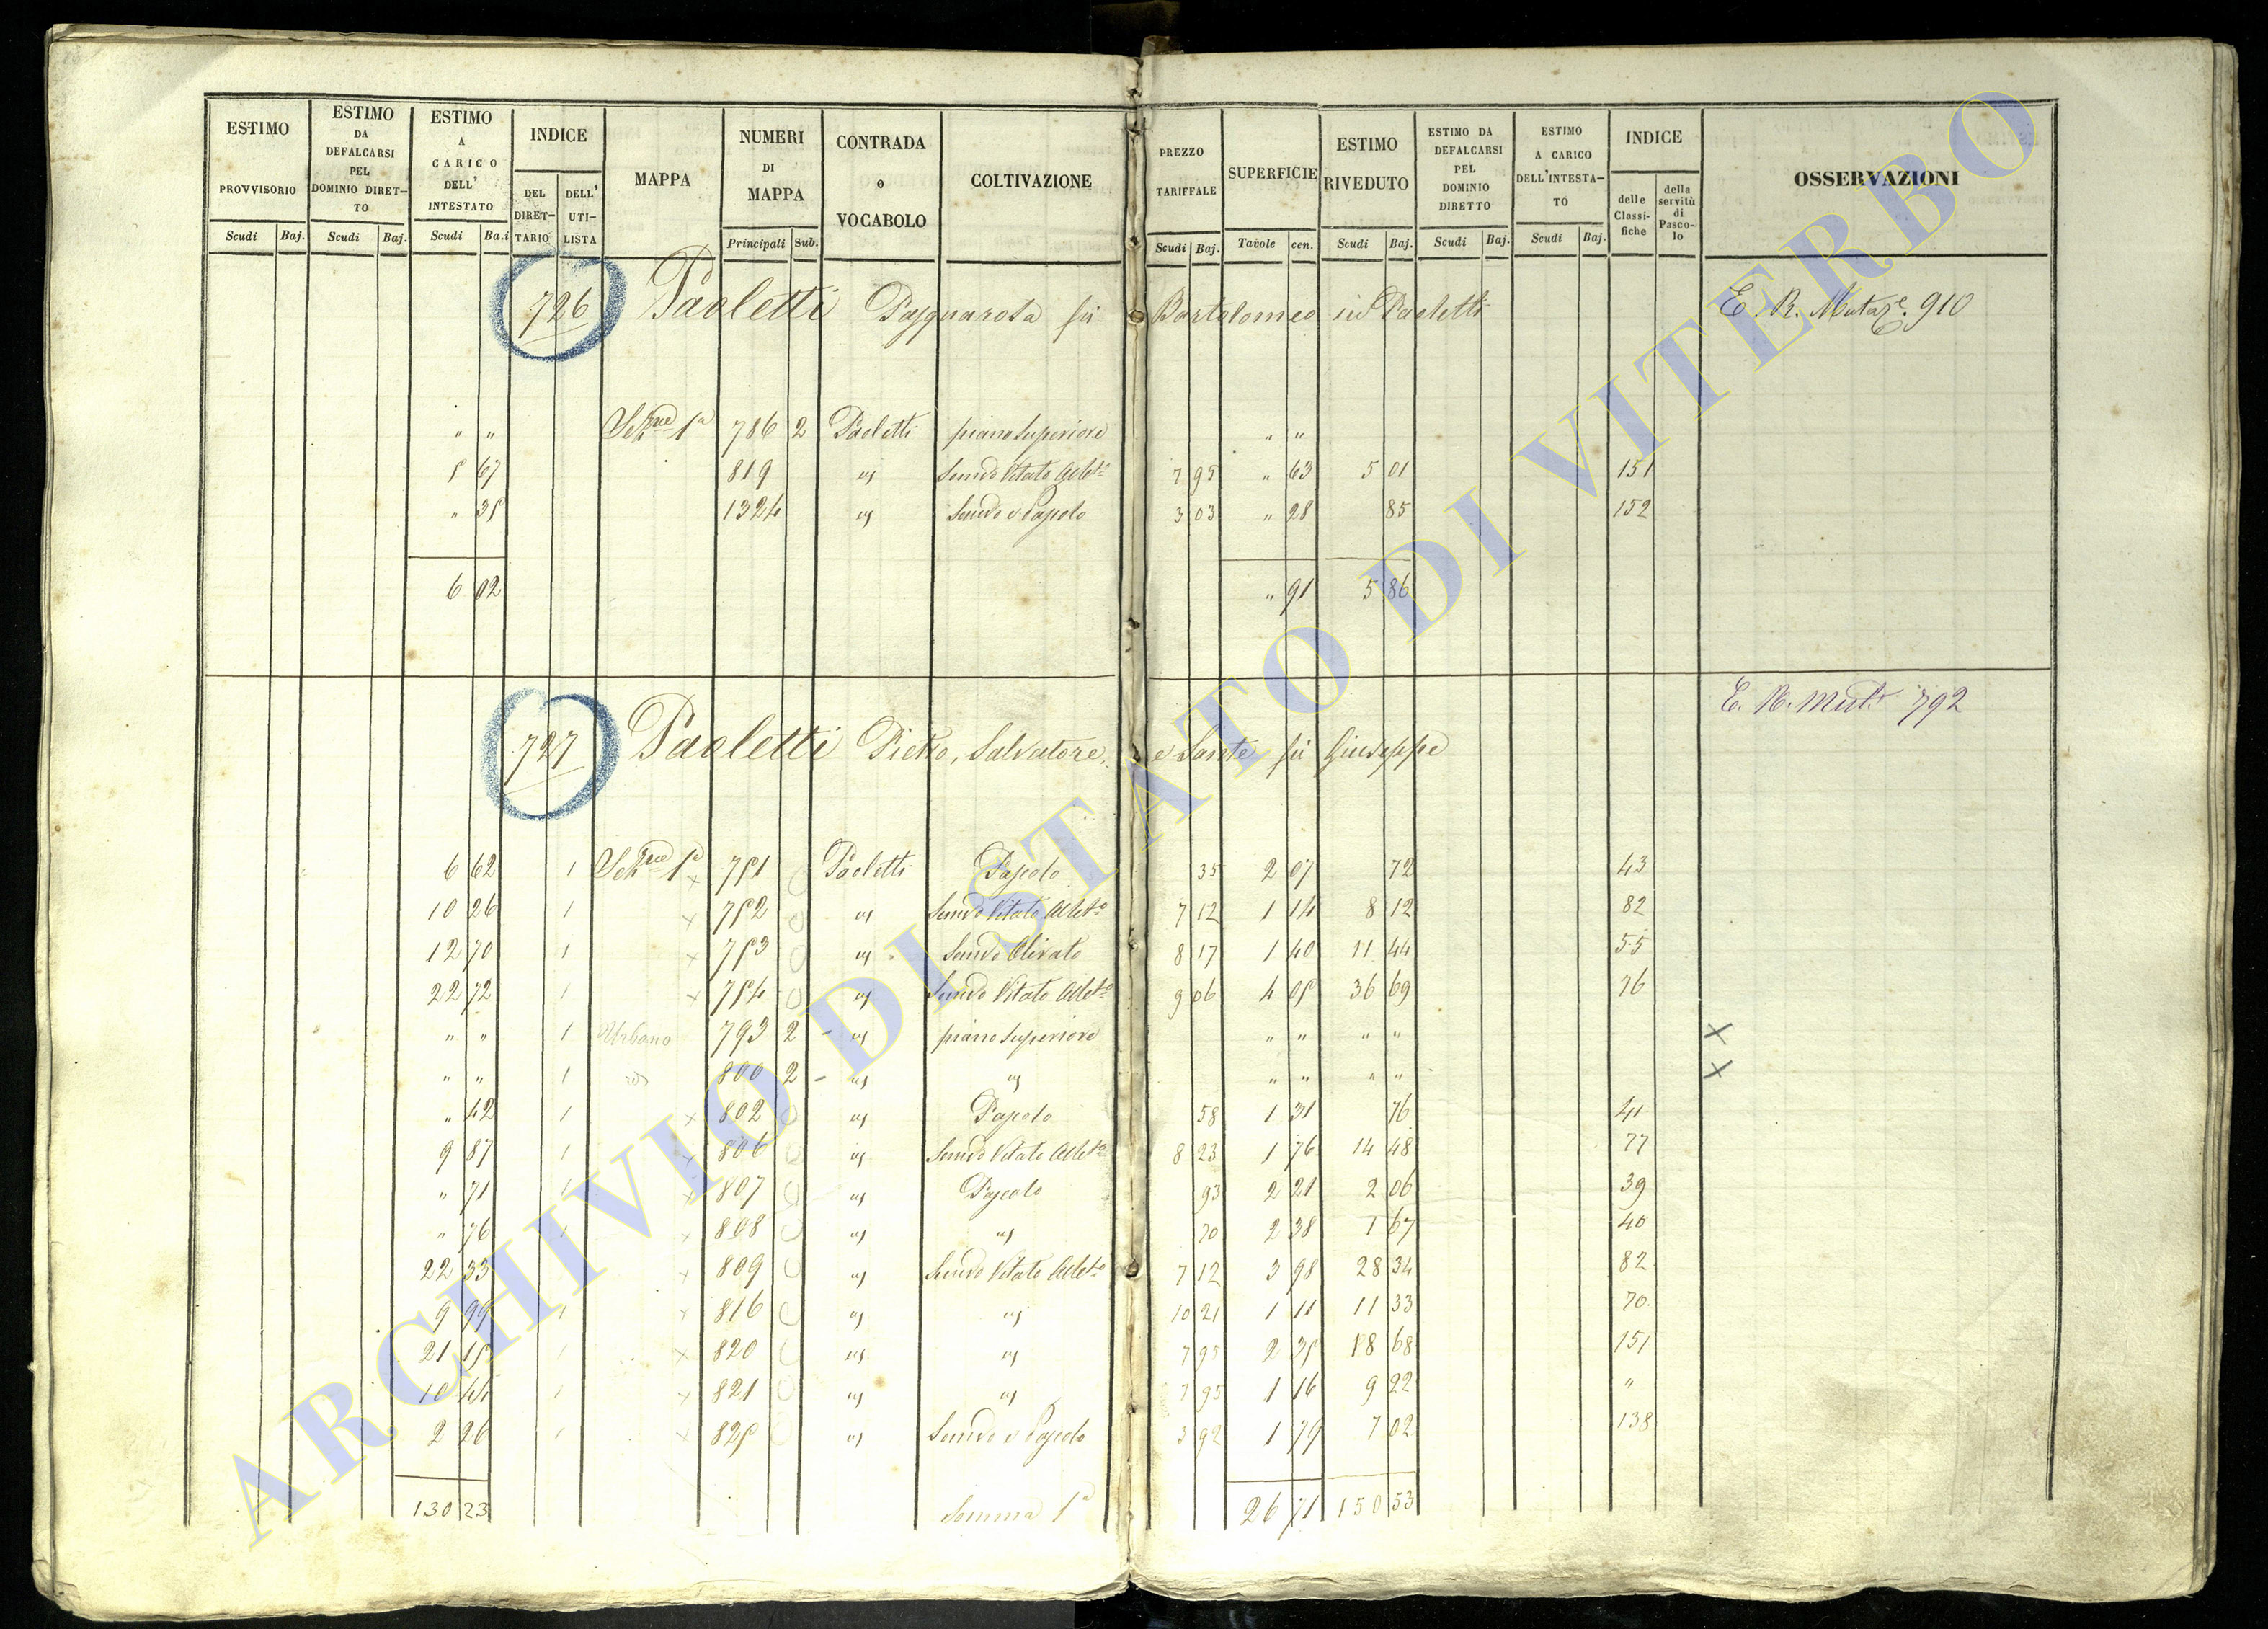 ESTIMO PROVVISORIO Scudi Baj.
ESTIMO DA DEFALCARSI PEL DOMINIO DIRET-TO Scudi Baj.
ESTIMO A CARICO DELL' INTESTATO Scudi Ba.i
INDICE DEL DIRET-TARIO DELL' UTI-LISTA
MAPPA
NUMERI DI MAPPA Principali Sub.
CONTRADA o VOCABOLO
COLTIVAZIONE
PREZZO TARIFFALE Scudi Baj.
SUPERFICIE Tavole cen.
ESTIMO RIVEDUTO Scudi Baj.
ESTIMO DA DEFALCARSI PEL DOMINIO DIRETTO Scudi Baj.
ESTIMO A CARICO DELL'INTESTA-TO Scudi Baj.
INDICE delle Classi-fiche della servitù di Pasco-lo
OSSERVAZIONI
726 Paoletti Pasquarosa fu Bartolomeo in Paoletti E. R. Mutaze. 910
" " Sezne 1a 786 2 Paoletti piano superiore " "
5 67 819 us Semvo Vitato Albto 7 95 " 63 5 01 151
" 35 1324 us Semvo e Pascolo 3 03 " 28 85 152
6 02 " 91 5 86
727 Paoletti Pietro, Salvatore, e Sante fu Giuseppe E. R. Mut. 792
6 62 1 Sezne 1a x 751 Paoletti Pascolo 35 2 07 72 43
10 26 1 x 752 us Semvo Vitato Albto 7 12 1 14 8 12 82
12 70 1 x 753 us Semvo Olivato 8 17 1 40 11 44 55
22 72 1 x 754 us Semvo Vitato Albto 9 06 4 05 36 69 76
" " 1 Urbano 793 2 - us piano superiore " " " " x
" " 1 us 800 2 - us us " " " " x
" 42 1 x 802 us Pascolo 58 1 31 76 41
9 87 1 x 806 us Semvo Vitato Albto 8 23 1 76 14 48 77
" 71 1 x 807 us Pascolo 93 2 21 2 06 39
" 76 1 x 808 us us 70 2 38 1 67 40
22 33 x 809 us Semvo Vitato Albto 7 12 3 98 28 34 82
9 99 1 x 816 us us 10 21 1 11 11 33 70
21 15 1 x 820 us us 7 95 2 35 18 68 151
10 44 1 x 821 us us 7 95 1 16 9 22 "
2 26 1 x 825 us Semvo e Pascolo 3 92 1 79 7 02 138
130 23 Somma 1a 26 71 150 53
ARCHIVIO DI STATO DI VITERBO